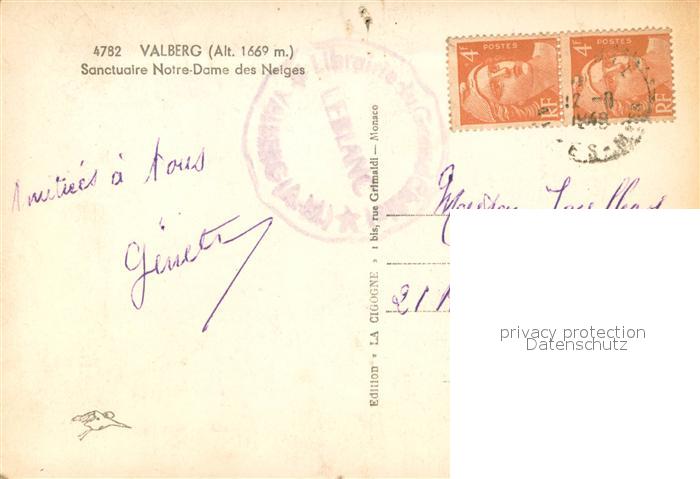 4782 VALBERG (Alt. 1669 m.)
Sanctuaire Notre-Dame des Neiges
Amitiés à tous
Edition " LA CIGOGNE " 1 bis, rue Grimaldi — Monaco
Librairie du Grand
LEBLANC
VALBERG (A.-M.)
4F POSTES RF
4F POSTES RF
12 -8
1949
21
privacy protection
Datenschutz